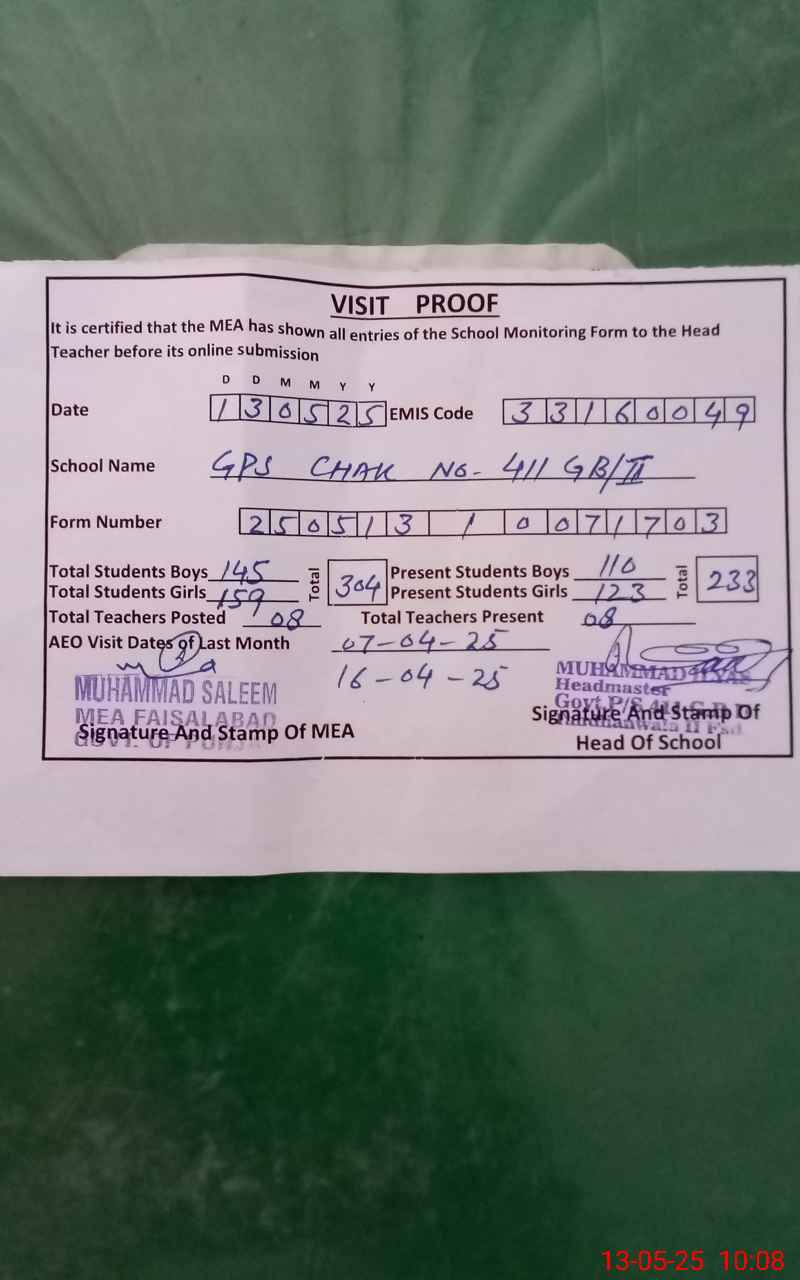 VISIT PROOF
It is certified that the MEA has shown all entries of the School Monitoring Form to the Head
Teacher before its online submission
D D M M Y Y
Date 130525 EMIS Code 33160049
School Name GPS CHAK NO- 411 GB/II
Form Number 250513 1 0071703
Total Students Boys 145 Total 304 Present Students Boys 110 Total 233
Total Students Girls 159 Present Students Girls 123
Total Teachers Posted 08 Total Teachers Present 08
AEO Visit Dates of Last Month 07-04-25
16-04-25
MUHAMMAD SALEEM
MEA FAISALABAD
GOVT. OF
Signature And Stamp Of MEA
MUHAMMAD ILYAS
Headmaster
Govt P/S
Signature And Stamp Of
Head Of School
13-05-25 10:08